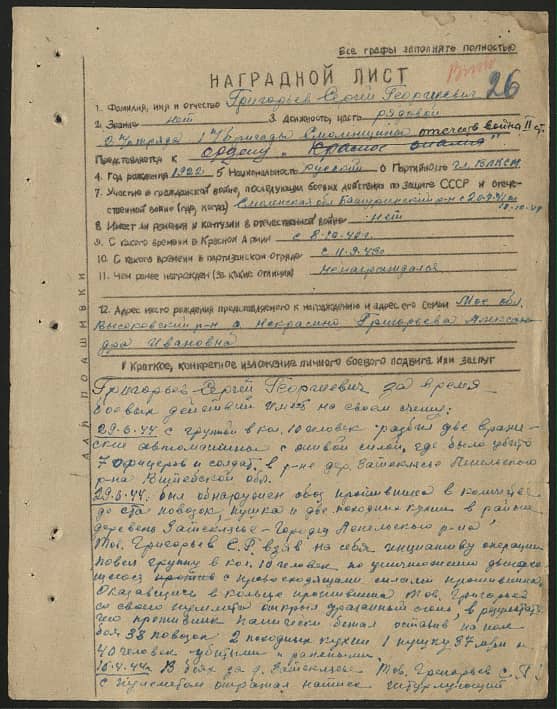 Все графы заполнять полностью
НАГРАДНОЙ ЛИСТ
26
1. Фамилия, имя и отчество Григорьев Сергей Георгиевич
2. Звание нет 3. Должность, часть рядовой
бригады Смоленщины отечеств война II ст.
Представляется к ордену „Красное знамя"
4. Год рождения 1922 5 Национальность русский 6 Партийность чл. ВЛКСМ
7. Участие в гражданской войне, последующих боевых действиях по защите СССР и отече-
ственной войне (где, когда) Смоленская обл. р-н с
8. Имеет ли ранения и контузии в отечественной войне нет
9. С какого времени в Красной Армии с 8-10-40г.
10. С какого времени в партизанском отряде с
11. Чем ранее награжден (за какие отличия) ненаграждался
12. Адрес место рождения представляемого к награждению и адрес его семьи Мос. обл.
Высоковский р-н д. Некрасино Григорьева Алексан-
дра Ивановна
I Краткое, конкретное изложение личного боевого подвига или заслуг
Григорьев Сергей Георгиевич за время
боевых действий имеет на своем счету:
29.6.44. с группой в кол. 10 человек разбил две враже-
ски автомашины с живой силой, где было убито
7 офицеров и солдат, в р-не дер. Лепельского
р-на Витебской обл.
29.6.44. был обнаружен обоз противника в количестве
до ста повозок, пушка и две походных кухни в районе
деревень Лепельского р-на
Тов. Григорьев С.Г. взяв на себя инициативу операции
повел группу в кол. 10 человек по уничтожению
против с превосходящими силами противника,
Оказавшись в кольце противника Тов. Григорьев
со своего пулемета открыл ураганный огонь, в результате
чего противник панически бежал оставив на поле
боя 38 повозок 2 походных кухни 1 пушку 37 м/м и
40 человек убитыми и ранеными.
В боях за д. Тов. Григорьев С.Г.
с пулеметом отражал натиск штурмующий
ДЛЯ ПОДШИВКИ